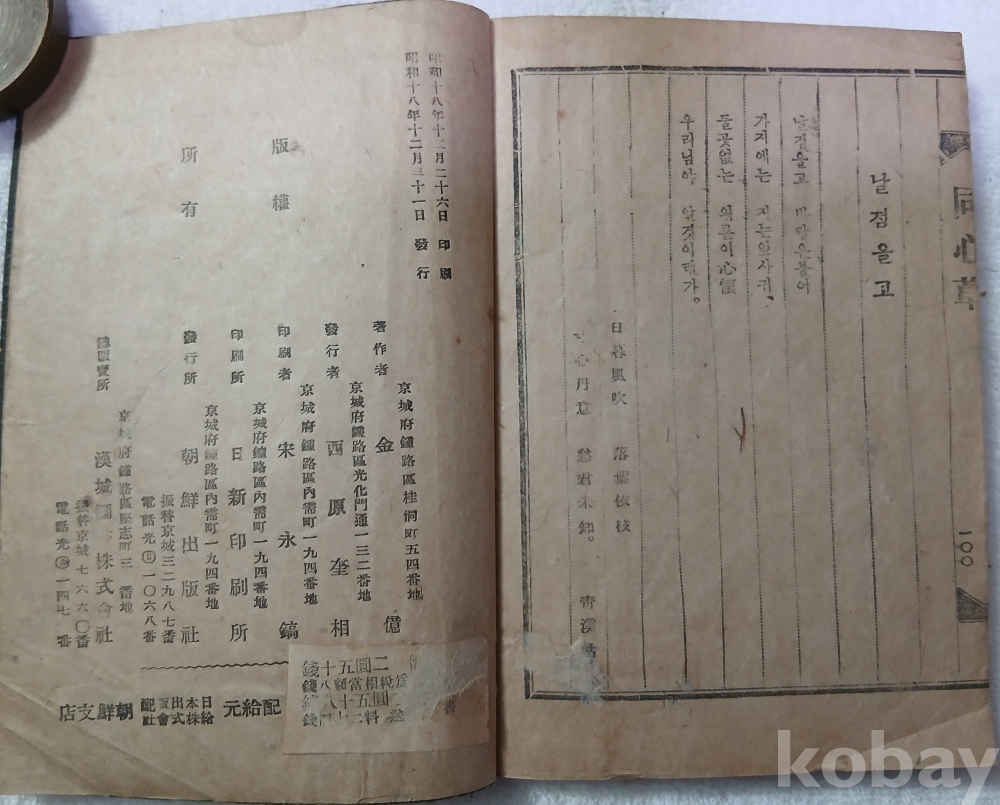 同心草
一〇〇
날점을고
날점을고 바람은불어
가지에는 지는잎사귀、
들곳없는 의문이心靈
우리님아 알것이런가。
日暮風吹 落葉依枝
寸心丹意 愁君未知。
昭和十八年十二月二十六日 印刷
昭和十八年十二月三十一日 發行
版權
所有
京城府鍾路區桂洞町五四番地
著作者 金億
京城府鍾路區光化門通一三二番地
發行者 西原奎相
京城府鍾路區內需町一九四番地
印刷者 宋永鎬
京城府鍾路區內需町一九四番地
印刷所 日新印刷所
京城府鍾路區內需町一九四番地
發行所 朝鮮出版社
振替京城三二九八七番
電話光一〇六八番
京城府鍾路區堅志町三 番地
總販賣所 漢城圖 株式會社
振替京城七六六〇番
電話光一四七 番
錢十五圓二
錢八額當相稅
錢八十五圓
料
番
配給元
日本出版配給株式會社
朝鮮支店
kobay